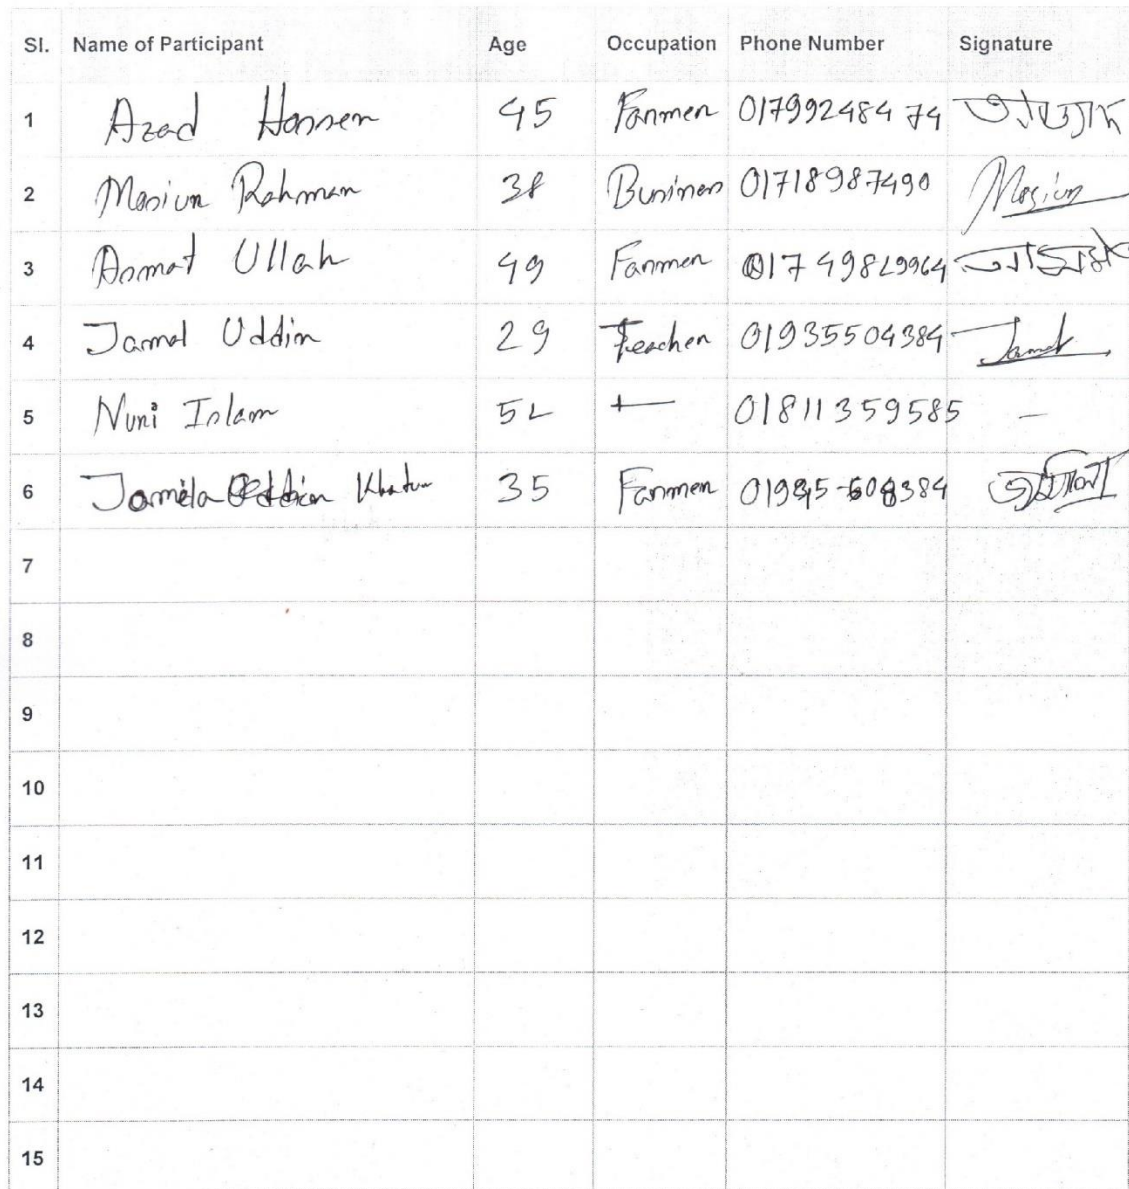 Sl. Name of Participant Age Occupation Phone Number Signature
1 Azad Hossen 45 Farmer 01799248474 আযাদ
2 Mosiur Rahman 38 Business 01718987490 Mosiur
3 Asmat Ullah 49 Farmer 01749829964
4 Jamal Uddin 29 Teacher 01935504384 Jamal
5 Nuri Islam 52 — 01811359585 —
6 Jamela Khatun 35 Farmer জমিলা
7
8
9
10
11
12
13
14
15